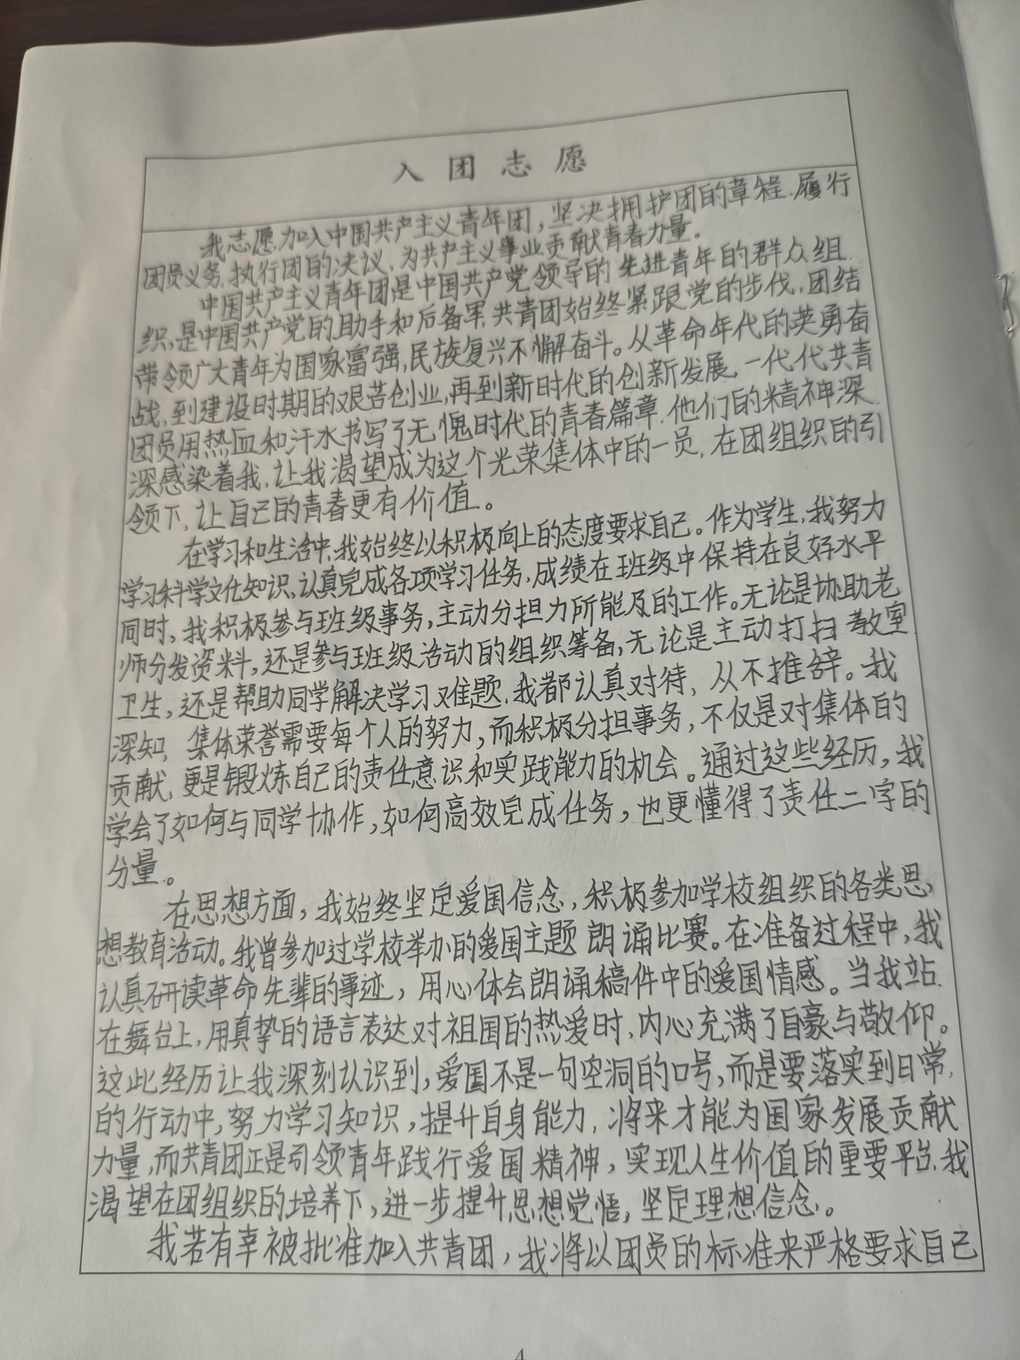 入团志愿
我志愿加入中国共产主义青年团，坚决拥护团的章程，履行
团员义务，执行团的决议，为共产主义事业贡献青春力量。
中国共产主义青年团是中国共产党领导的先进青年的群众组
织，是中国共产党的助手和后备军，共青团始终紧跟党的步伐，团结
带领广大青年为国家富强，民族复兴不懈奋斗。从革命年代的英勇奋
战，到建设时期的艰苦创业，再到新时代的创新发展，一代代共青
团员用热血和汗水书写了无愧时代的青春篇章，他们的精神深
深感染着我，让我渴望成为这个光荣集体中的一员，在团组织的引
领下，让自己的青春更有价值。
在学习和生活中，我始终以积极向上的态度要求自己。作为学生，我努力
学习科学文化知识，认真完成各项学习任务，成绩在班级中保持在良好水平
同时，我积极参与班级事务，主动分担力所能及的工作。无论是协助老
师分发资料，还是参与班级活动的组织筹备，无论是主动打扫教室
卫生，还是帮助同学解决学习难题，我都认真对待，从不推辞。我
深知，集体荣誉需要每个人的努力，而积极分担事务，不仅是对集体的
贡献，更是锻炼自己的责任意识和实践能力的机会。通过这些经历，我
学会了如何与同学协作，如何高效完成任务，也更懂得了责任二字的
分量。
在思想方面，我始终坚定爱国信念，积极参加学校组织的各类思
想教育活动。我曾参加过学校举办的爱国主题朗诵比赛。在准备过程中，我
认真研读革命先辈的事迹，用心体会朗诵稿件中的爱国情感。当我站
在舞台上，用真挚的语言表达对祖国的热爱时，内心充满了自豪与敬仰。
这些经历让我深刻认识到，爱国不是一句空洞的口号，而是要落实到日常
的行动中，努力学习知识，提升自身能力，将来才能为国家发展贡献
力量，而共青团正是引领青年践行爱国精神，实现人生价值的重要平台，我
渴望在团组织的培养下，进一步提升思想觉悟，坚定理想信念。
我若有幸被批准加入共青团，我将以团员的标准来严格要求自己
4